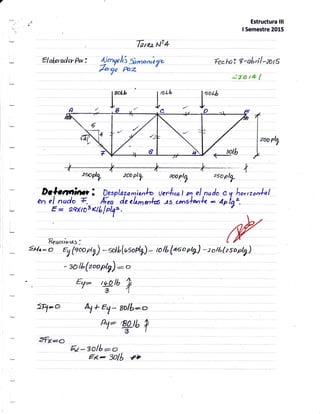 Estructura III
I Semestre 2015
Tarea N°4
Elaborador Por:
Fecha: 9-abril-2015
Jorge Paz
80Lb 10Lb 50Lb
A B C D E
6
F G H
200plg
30lb
200plg 200plg 200plg 250plg
Determinar: Desplazamiento vertical en el nudo C y horizontal
en el nudo F. Area de elementos es constante = 4plg².
E = 29x10³ Klb/plg².
Reacciones:
Ey(900plg) - 50lb(650plg) - 10lb(450plg) - 20lb(250plg)
- 30lb(200plg) = 0
Ey= 140 lb
3
ΣFy=0 Ay + Ey - 80lb = 0
Ay= 80 lb
3
ΣFx=0
Ex - 30lb = 0
Ex= 30lb